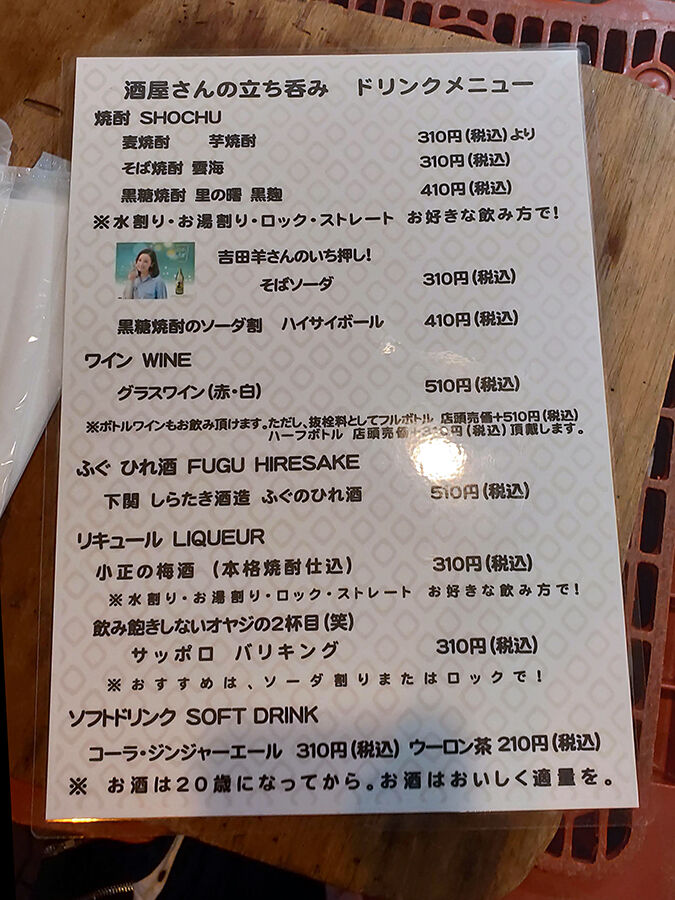 酒屋さんの立ち呑み ドリンクメニュー
焼酎 SHOCHU
麦焼酎 芋焼酎 310円(税込)より
そば焼酎 雲海 310円(税込)
黒糖焼酎 里の曙 黒麹 410円(税込)
※水割り・お湯割り・ロック・ストレート お好きな飲み方で!
吉田羊さんのいち押し!
そばソーダ 310円(税込)
黒糖焼酎のソーダ割 ハイサイボール 410円(税込)
ワイン WINE
グラスワイン(赤・白) 510円(税込)
※ボトルワインもお飲み頂けます。ただし、抜栓料としてフルボトル 店頭売価+510円(税込)
ハーフボトル 店頭売価+310円(税込)頂戴します。
ふぐ ひれ酒 FUGU HIRESAKE
下関 しらたき酒造 ふぐのひれ酒 510円(税込)
リキュール LIQUEUR
小正の梅酒 (本格焼酎仕込) 310円(税込)
※水割り・お湯割り・ロック・ストレート お好きな飲み方で!
飲み飽きしないオヤジの2杯目(笑)
サッポロ バリキング 310円(税込)
※おすすめは、ソーダ割りまたはロックで!
ソフトドリンク SOFT DRINK
コーラ・ジンジャーエール 310円(税込) ウーロン茶 210円(税込)
※ お酒は20歳になってから。お酒はおいしく適量を。